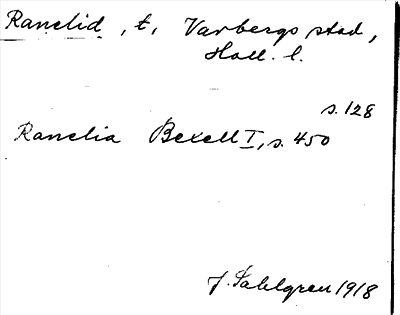 Ranelid, t, Varbergs stad,
Hall. l.
s. 128
Ranelia Bexell I, s. 450
J. Sahlgren 1918